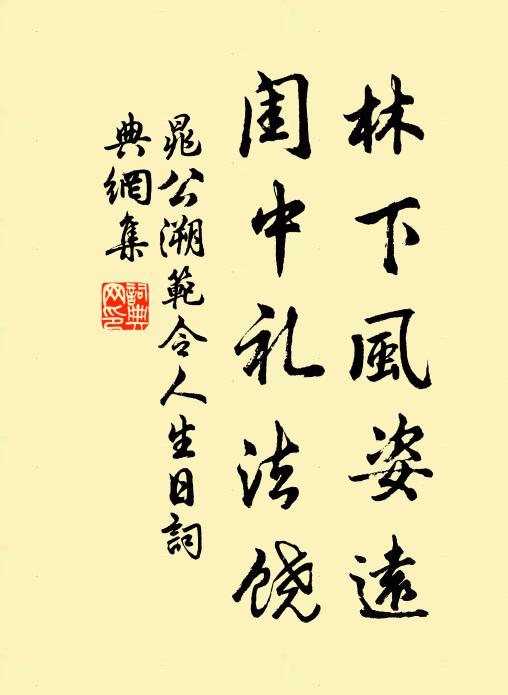 林下風姿遠
闺中礼法饶
晁公溯範令人生日詞
典網集
詞典网印